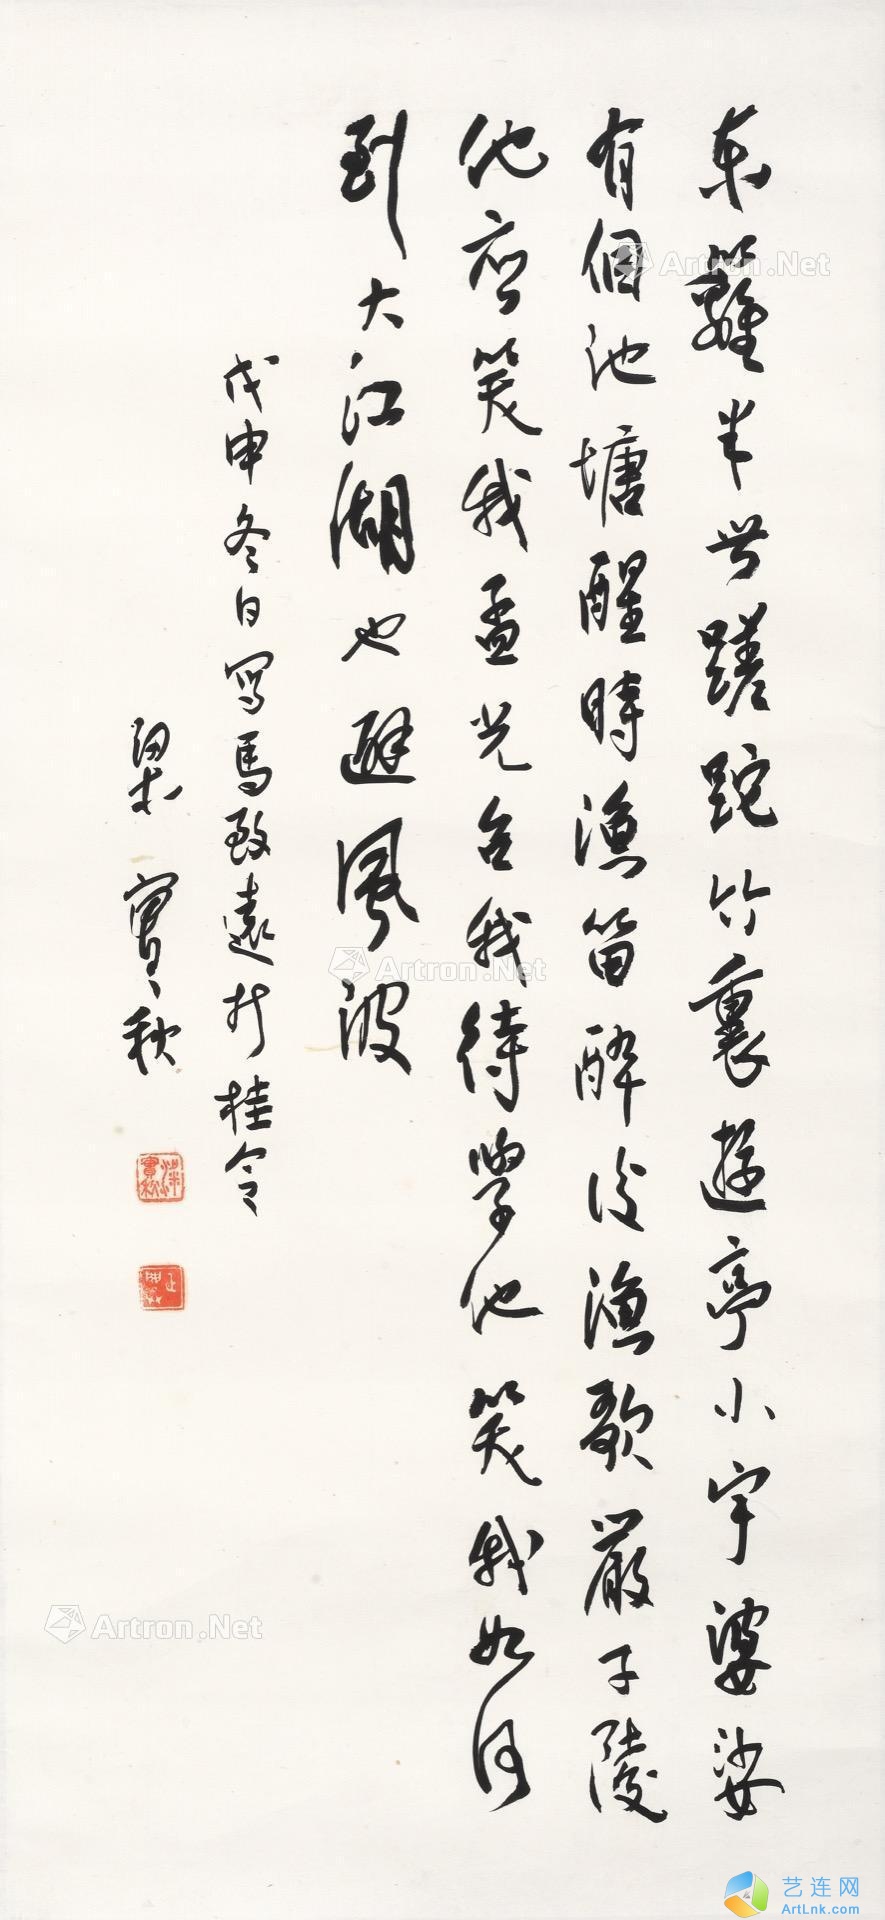 東籬半世蹉跎竹裏遊亭小宇婆娑
有個池塘醒時漁笛醉後漁歌嚴子陵
他應笑我孟光台我待學他笑我如何
到大江湖也避風波
戊申冬日寫馬致遠折桂令
梁實秋
梁實秋
Artron.Net
Artron.Net
Artron.Net
艺连网
ArtLnk.com